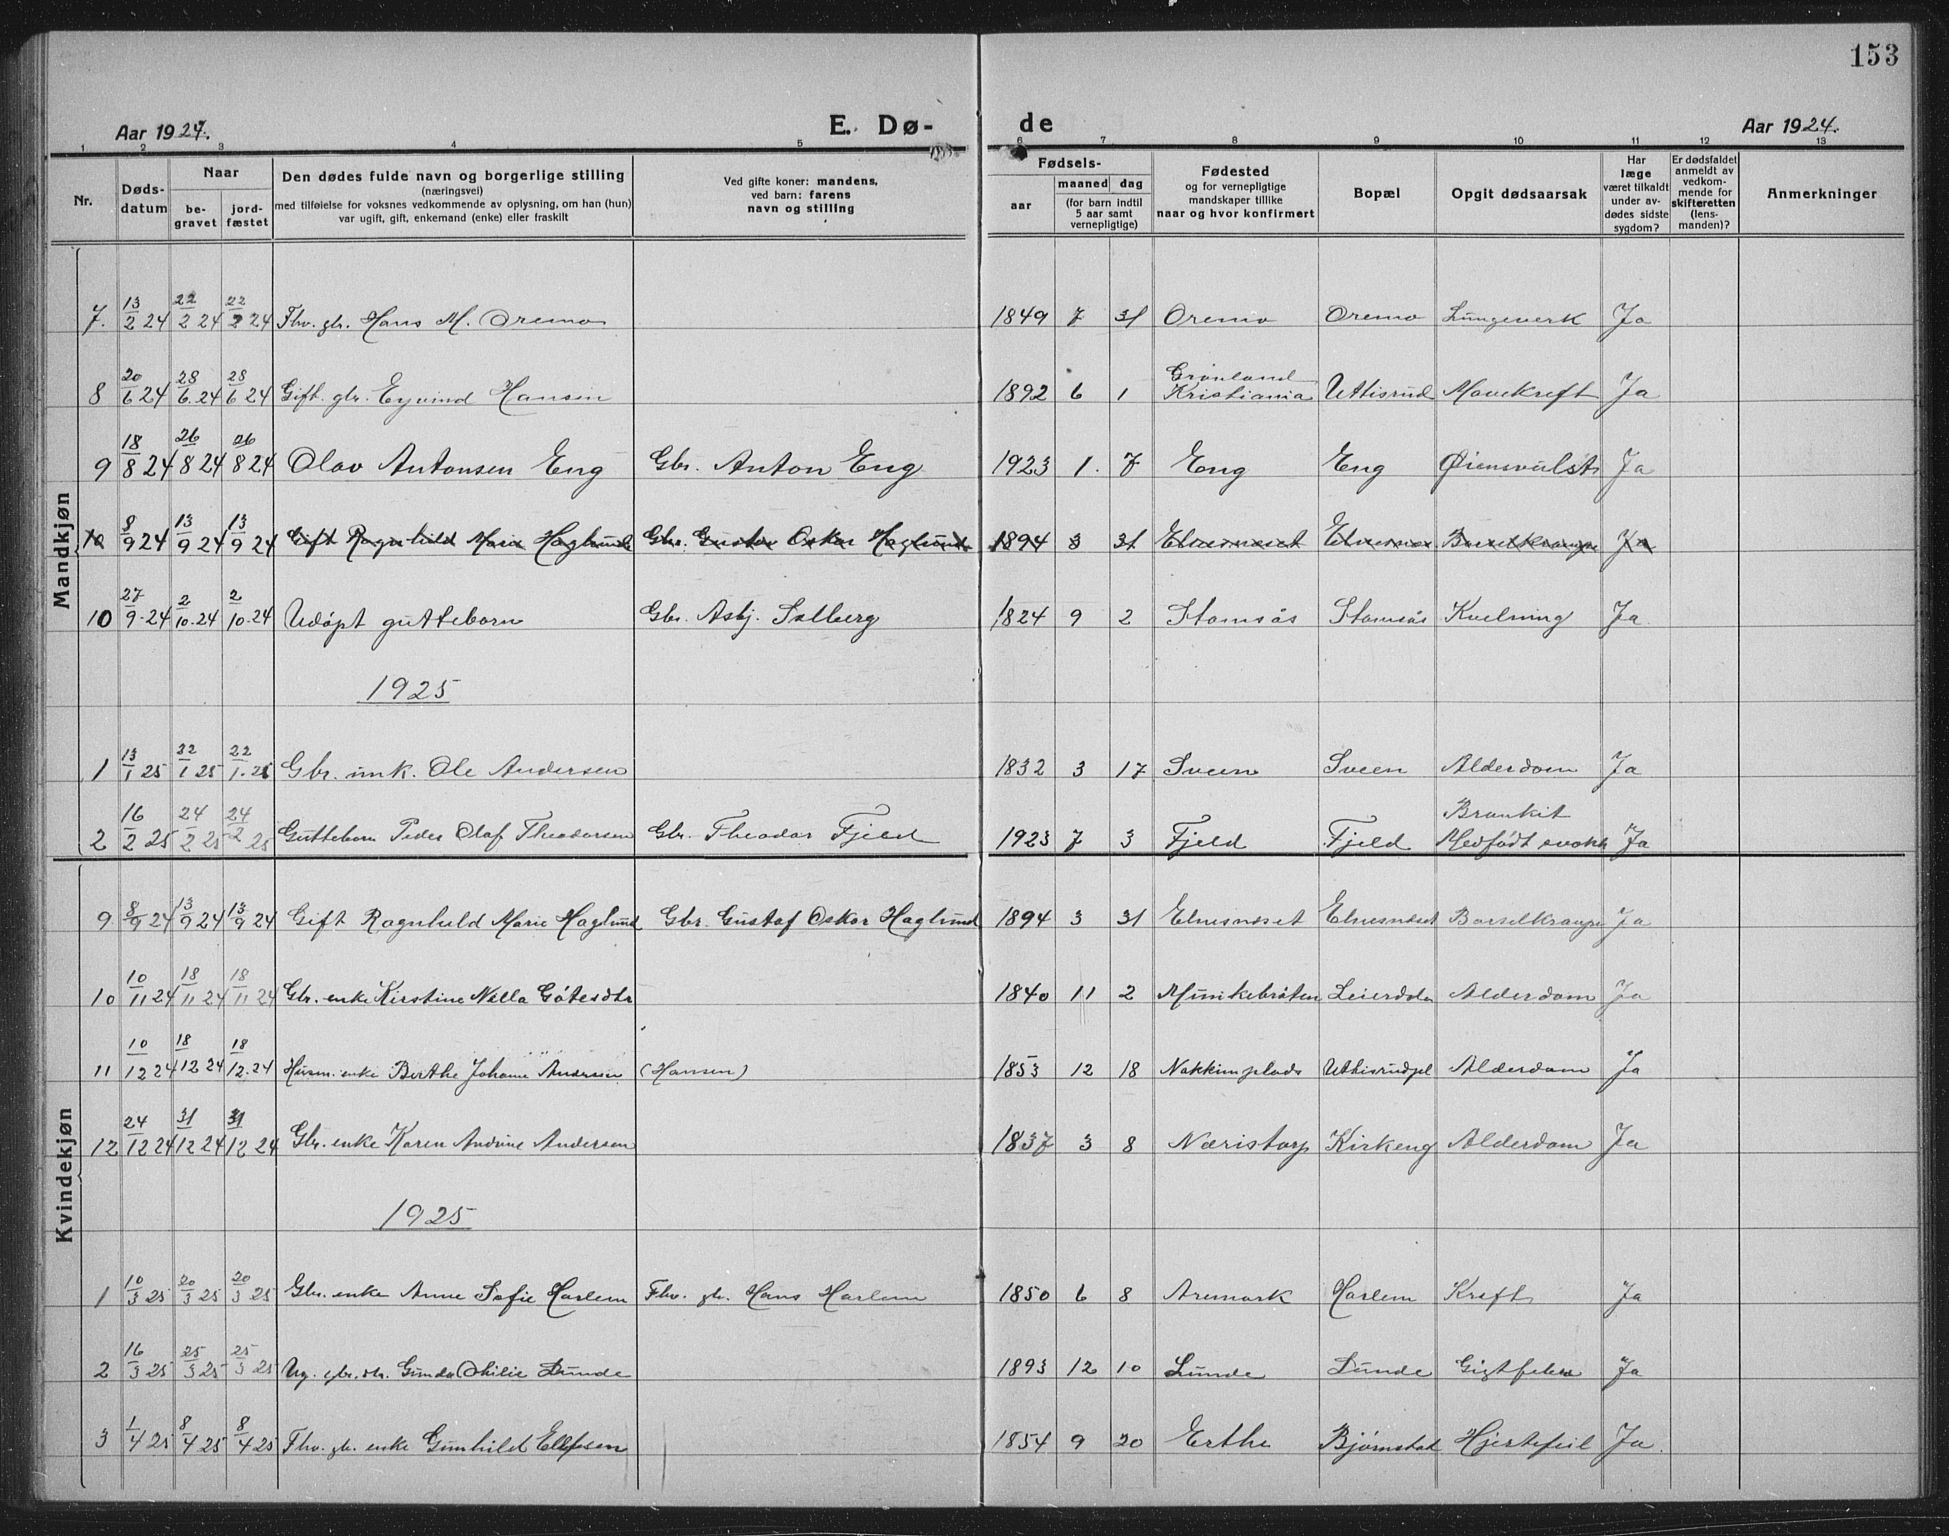 153
Aar 1924.
E. Dø-
de
Aar 1924.
1 2 3 4 5 6 7 8 9 10 11 12 13
Nr.
Døds-
datum
Naar
be-
gravet
jord-
fæstet
Den dødes fulde navn og borgerlige stilling
(næringsvei)
med tilføielse for voksnes vedkommende av oplysning, om han (hun)
var ugift, gift, enkemand (enke) eller fraskilt
Ved gifte koner: mandens,
ved barn: farens
navn og stilling
Fødsels-
aar
maaned dag
(for barn indtil
5 aar samt
vernepligtige)
Fødested
og for vernepligtige
mandskaper tillike
naar og hvor konfirmert
Bopæl
Opgit dødsaarsak
Har
læge
været tilkaldt
under av-
dødes sidste
sygdom?
Er dødsfaldet
anmeldt av
vedkom-
mende for
skifteretten
(lens-
manden)?
Anmerkninger
Mandkjøn
7. 13/2 24 22/2 24 22/2 24 Fhv. gbr. Hans M. Oremo 1849 7 31 Oremo Oremo Lungeverk Ja
8 20/6 24 28/6.24 28/6 24 Gift. gbr. Eyvind Hansen 1892 6 1 Grønland Kristiania Uttisrud Mavekreft Ja
9 18/8 24 26/8 24 26/8 24 Olav Antonsen Eng Gbr. Anton Eng 1923 1. 7 Eng Eng Øiensvulst Ja
10 8/9 24 13/9 24 13/9 24 Gift Ragnhild Marie Haglund Gbr. Gustav Oskar Haglund 1894 3 31 Elnesnæset Elnesnæs. Barselkrampe Ja
10 27/9-24 2/10-24 2/10-24 Udøpt gutteborn Gbr. Asbj. Solberg 1824 9 2 Stomsås Stomsås Kvelning Ja
1925
1 13/1 25 22/1 25 22/1.25 Gbr. enk. Ole Andersen 1832 3 17 Sveen Sveen Alderdom Ja
2 16/2 25 24/2 25 24/2 25 Guttebarn Peder Olaf Theodorsen Gbr. Theodor Fjeld 1923 7 3 Fjeld Fjeld Bronkit Medfødt svakh Ja
Kvindekjøn
9 8/9 24 13/9 24 13/9 24 Gift Ragnhild Marie Haglund Gbr. Gustaf Oskar Haglund 1894 3 31 Elnesnæset Elnesnæset Barselkrampe Ja
10 10/11 24 18/11 24 18/11 24 Gbr. enke Kirstine Nella Götesdtr 1840 11 2 Munkebråten Leierdola Alderdom Ja
11 10/12 24 18/12 24 18/12.24 Husm. enke Berthe Johanne Andersen (Hansen) 1853 12 18 Nakkimplads Uttisrudpl Alderdom Ja
12 24/12 24 31/12 24 31/12 24 Gbr. enke Karen Andrine Andersen 1837 3 8 Næristorp Kirkeng Alderdom Ja
1925
1 10/3 25 20/3 25 20/3 25 Gbr. enke Anne Sofie Harlem Fhv. gbr. Hans Harlem 1850 6 8 Aremark Harlem Kreft Ja
2 16/3 25 25/3 25 25/3 25 Ug. gbr. dtr. Gunda Othilie Lunde 1893 12 10 Lunde Lunde Gigtfeber Ja
3 1/4 25 8/4 25 8/4 25 Fhv. gbr. enke Gunhild Ellefsen 1854 9 20 Erthe Bjørnstad Hjertefeil Ja.